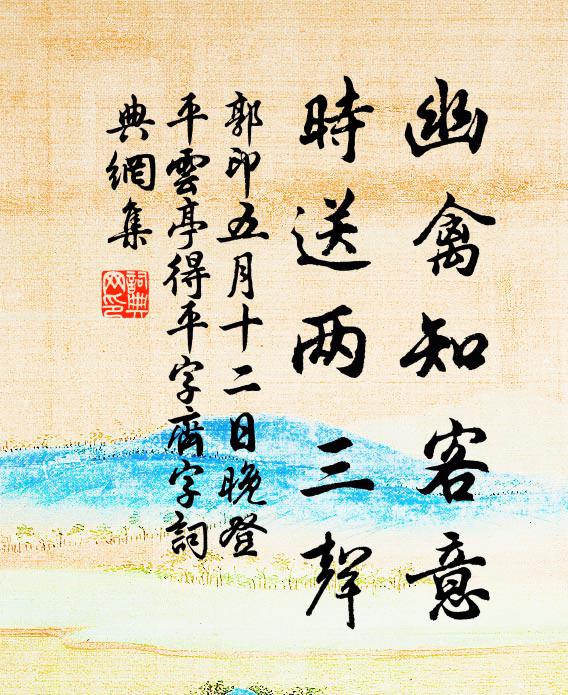 幽禽知客意
時送两三聲
郭印五月十二日晚登
平雲亭得平字齊字詞
典網集
詞典网印